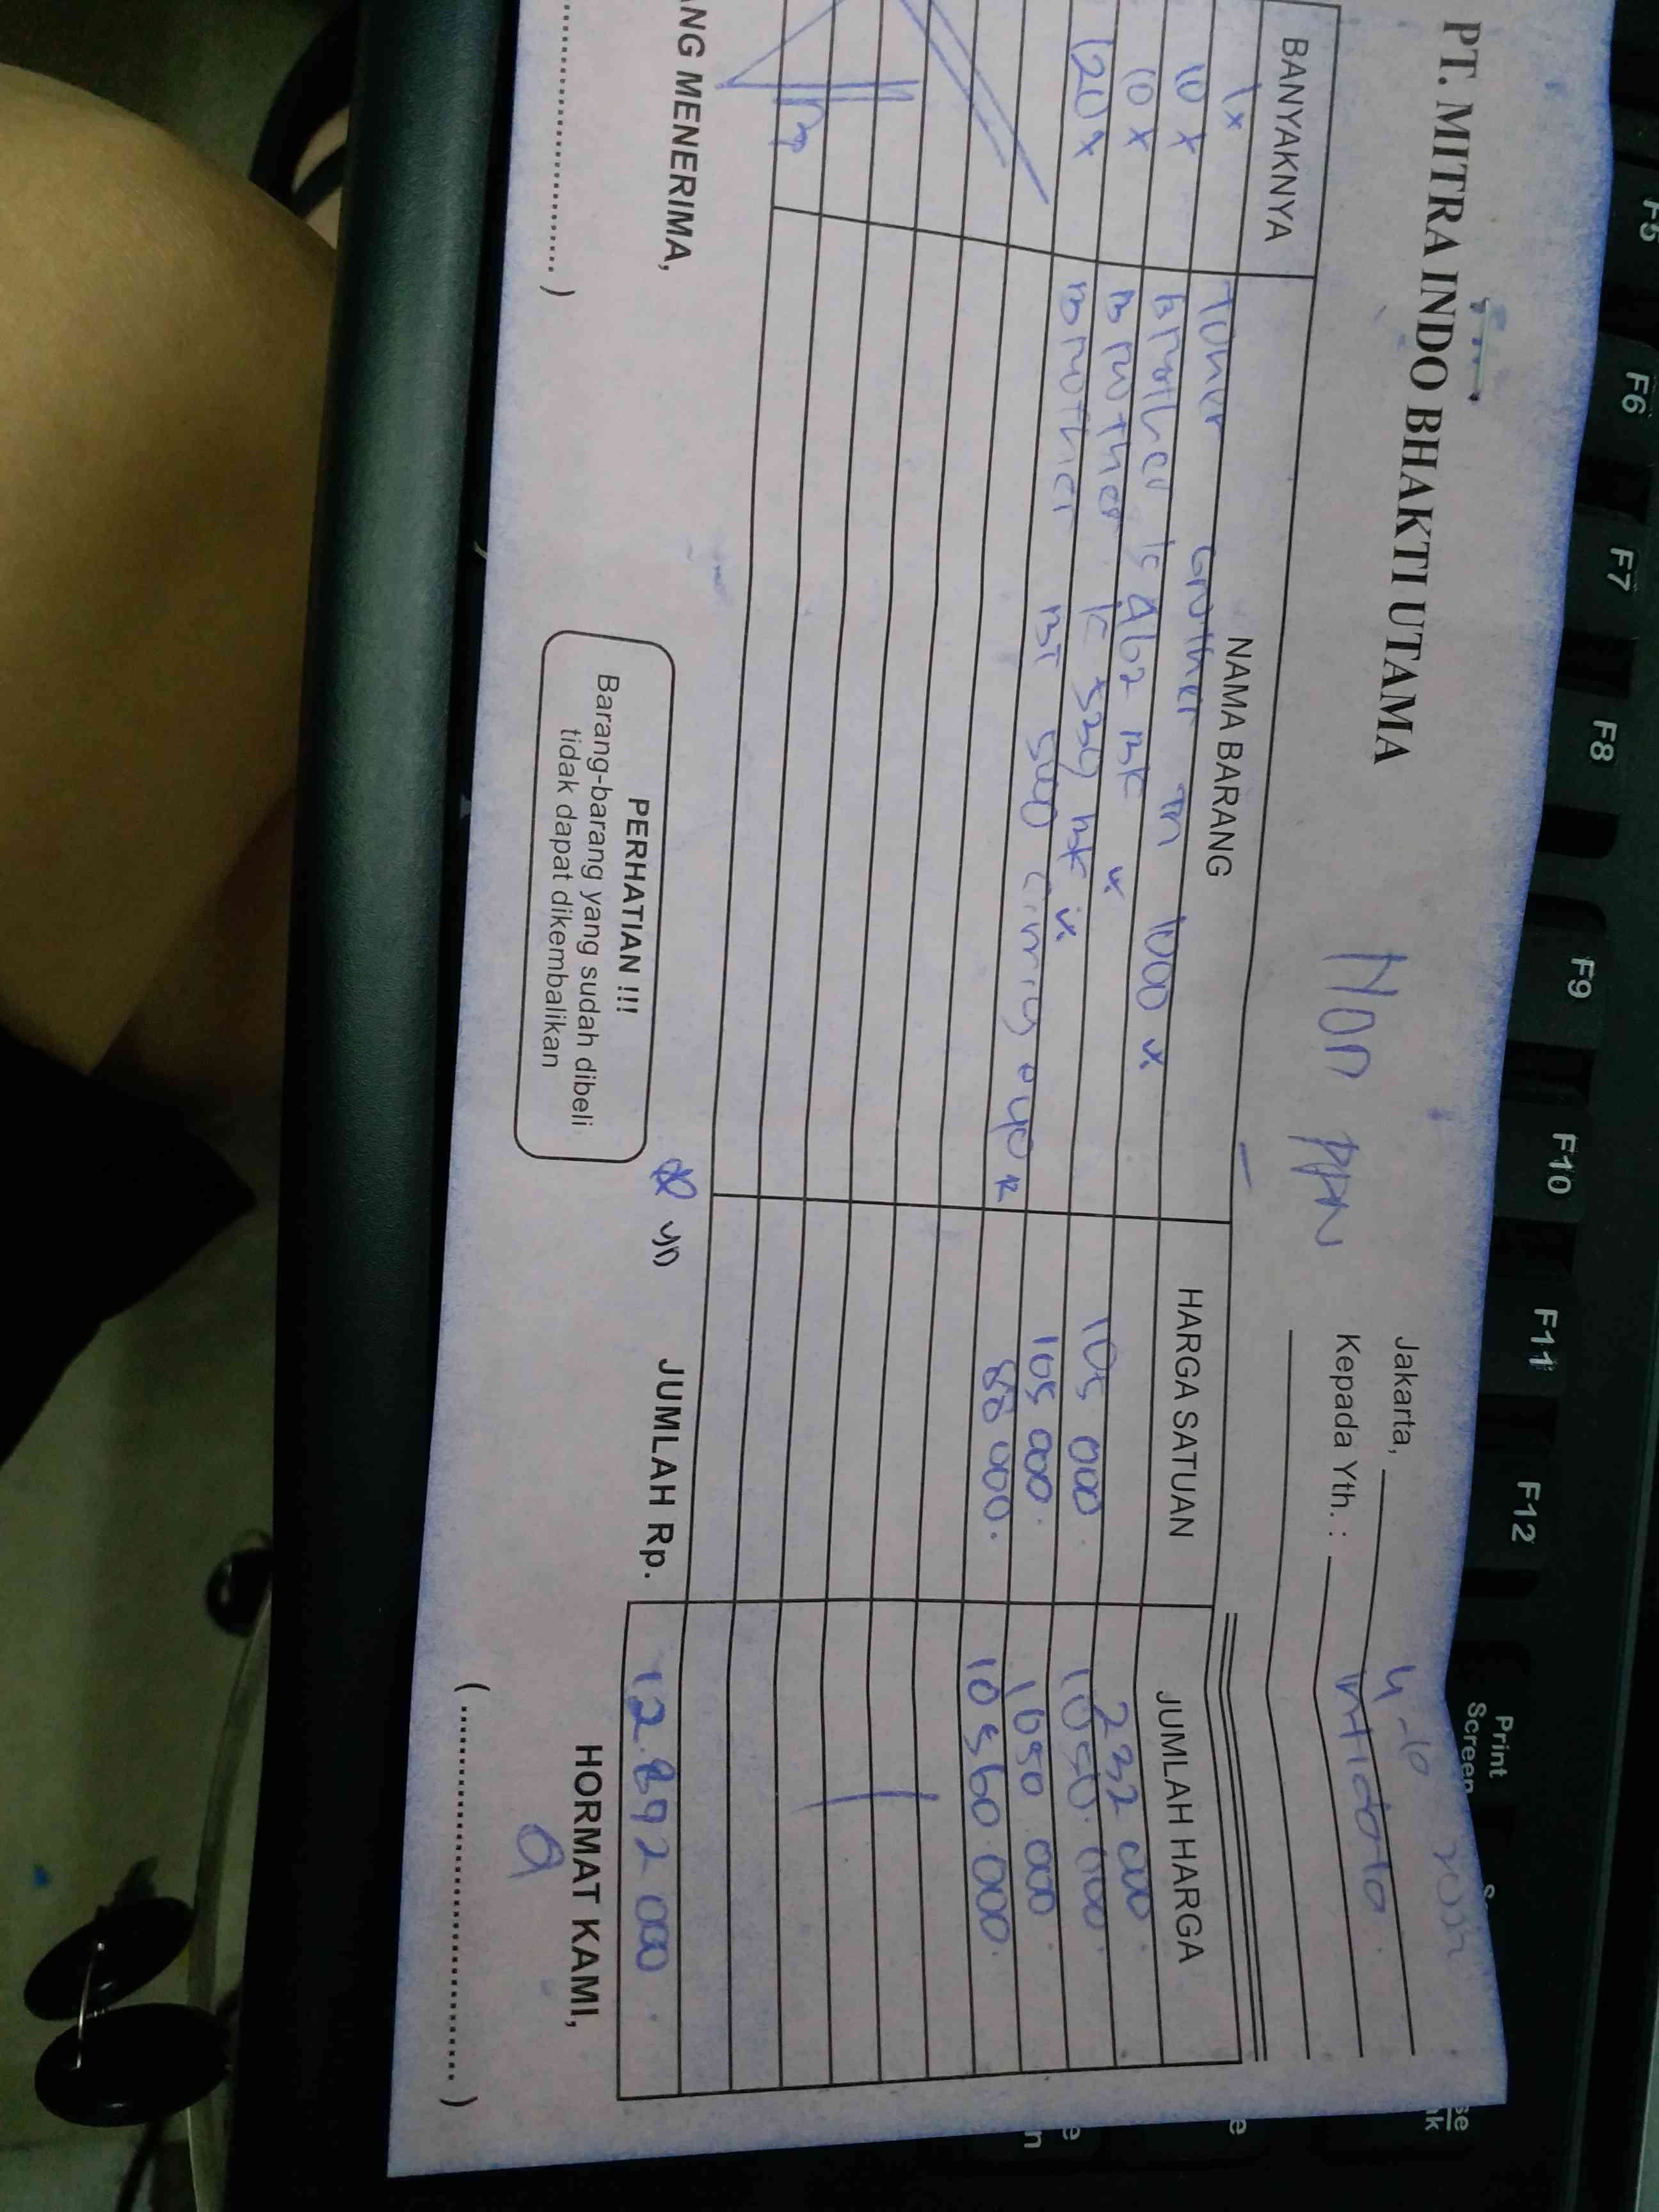 PT. MITRA INDO BHAKTI UTAMA
Non PPN
Jakarta, 4-10
Kepada Yth. :
BANYAKNYA NAMA BARANG HARGA SATUAN JUMLAH HARGA
1x Toner Brother TN 1000 232 000
10 x Brother 462 BK 105 000 1050.000
10 x Brother 539 BK 105 000 1050 000
120 x Brother BT 5000 88 000 10 560 000
JUMLAH Rp. 12.892 000
NG MENERIMA,
HORMAT KAMI,
PERHATIAN !!!
Barang-barang yang sudah dibeli
tidak dapat dikembalikan
F5
F6
F7
F8
F9
F10
F11
F12
Print
Screen